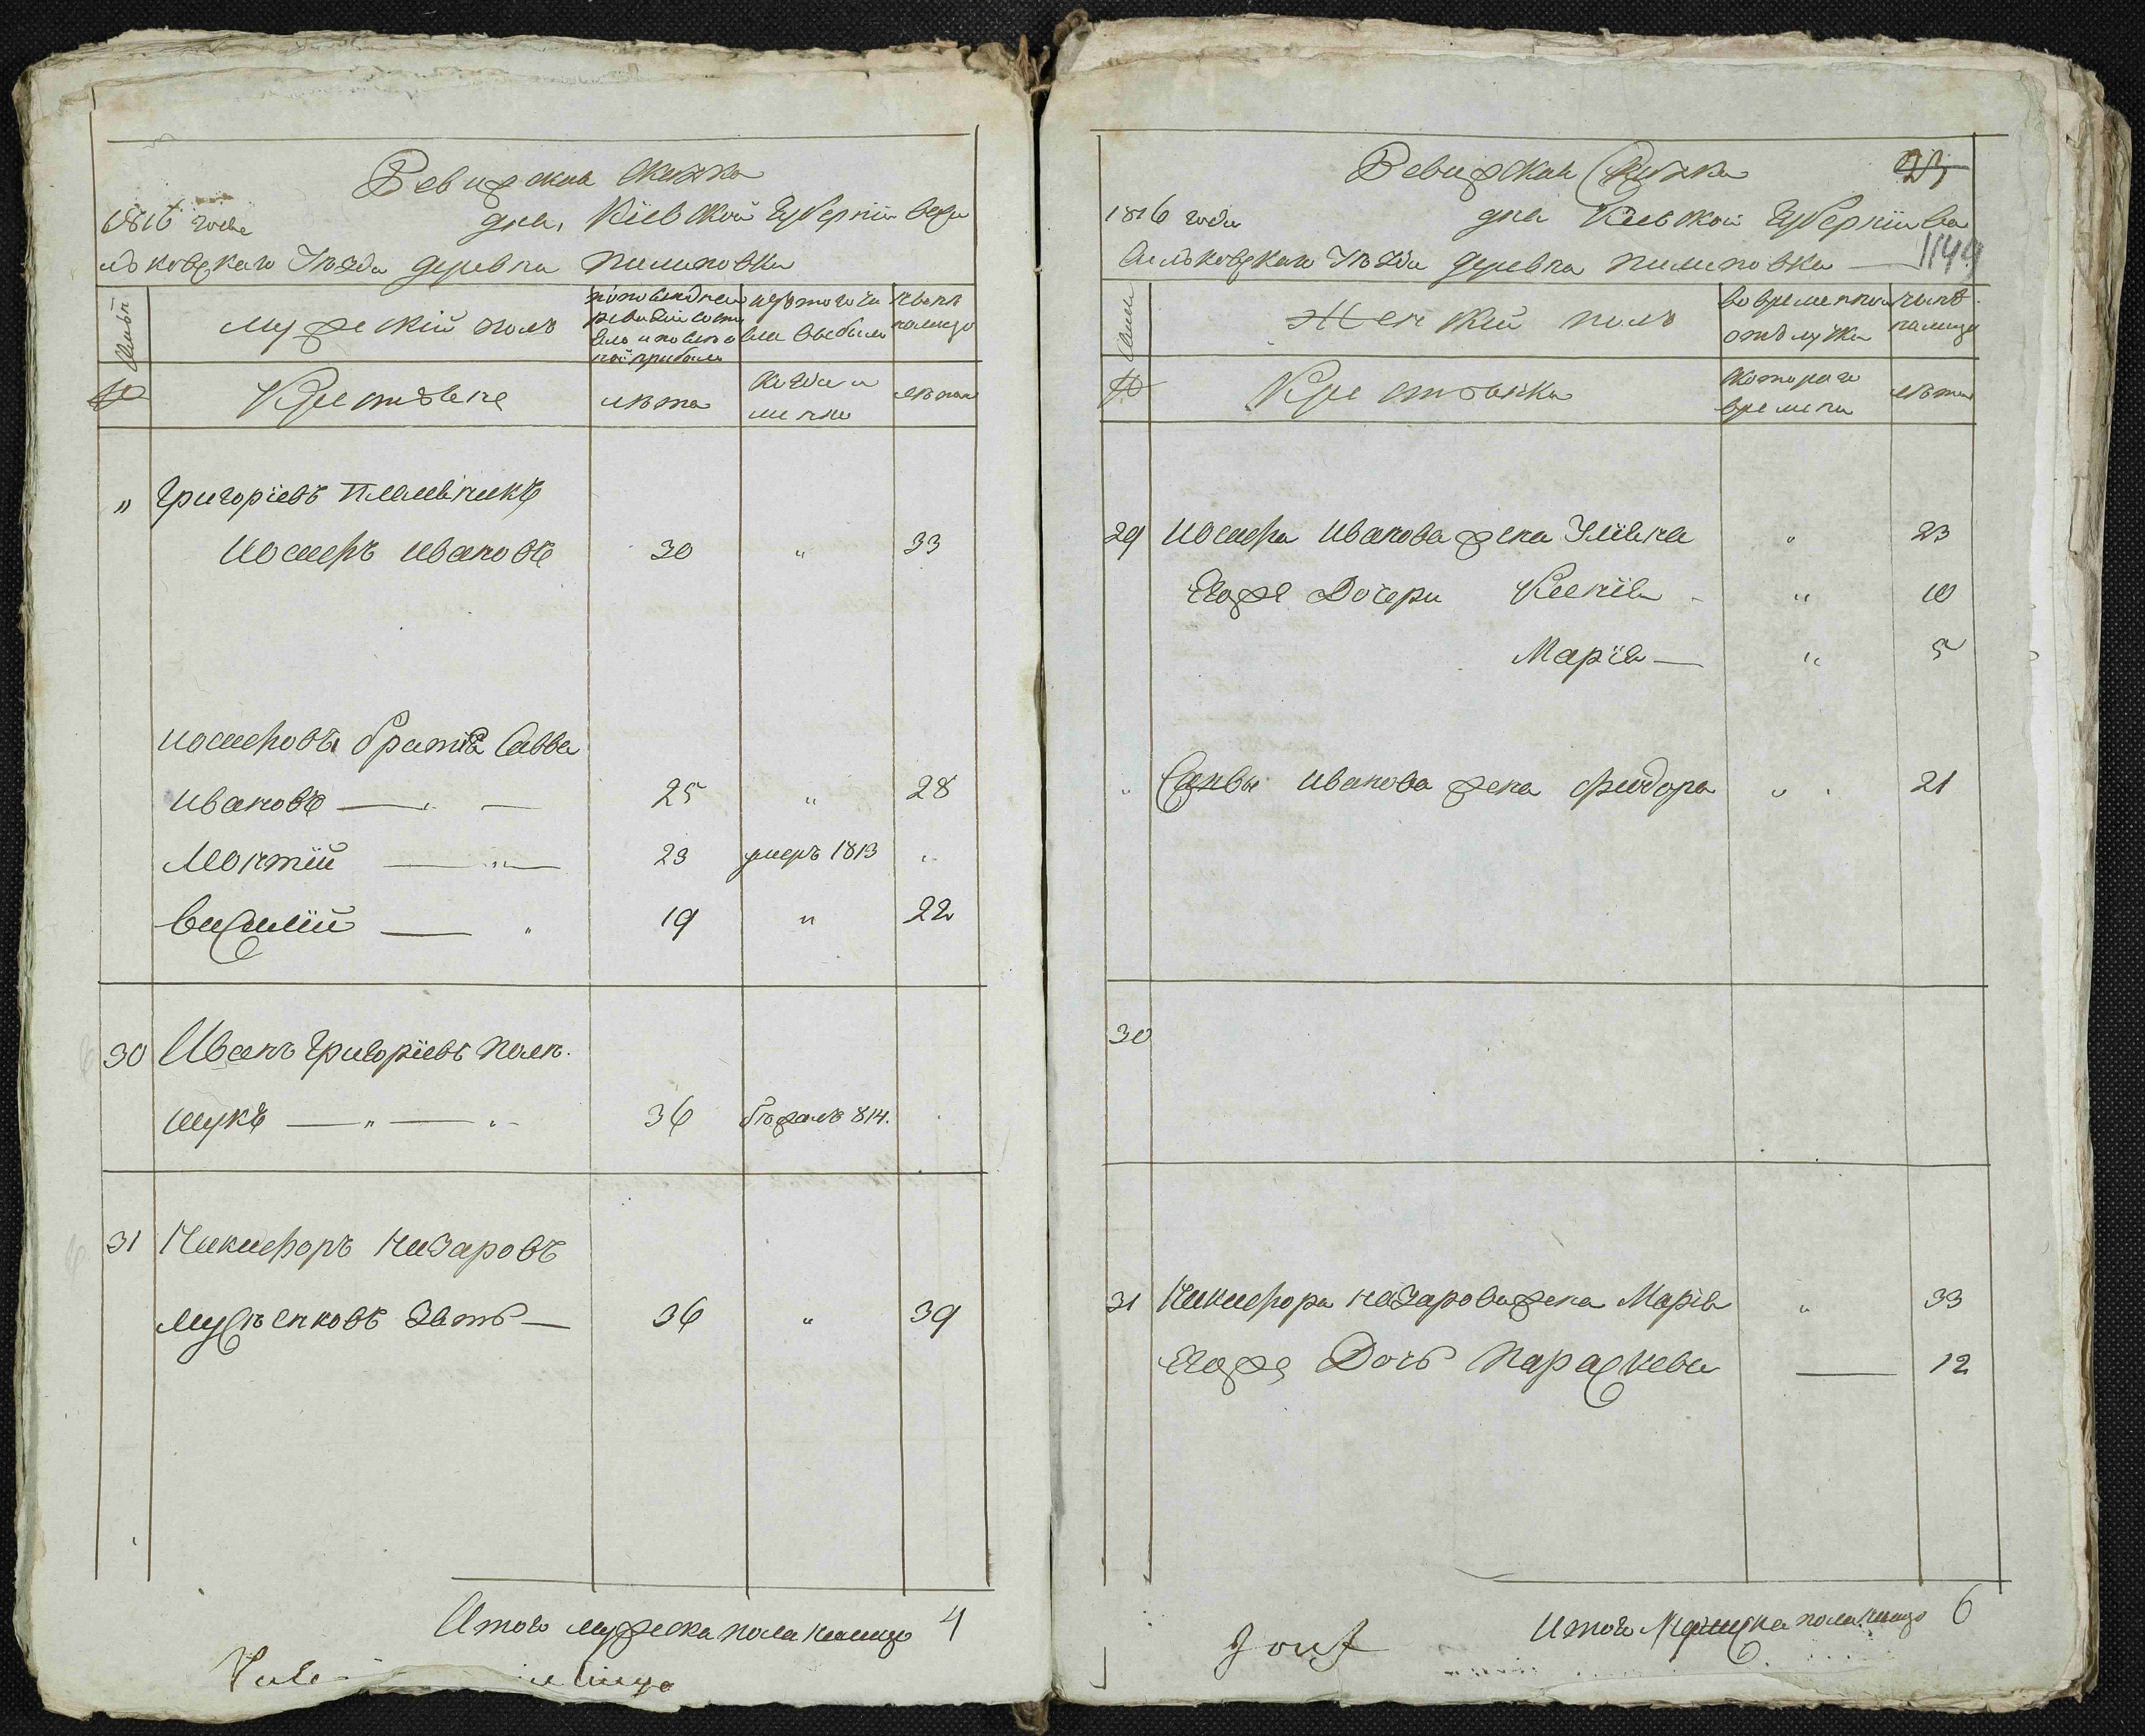 Ревизская Скаска
1816 года дня, Кіевской Губерніи Васи
льковскаго Уѣзда деревни Пилиповки
Семьи
мужескій полъ
по последней ревизіи состояло и после оной прибыло
изъ того числа выбыло
нынѣ налицо
№
Крестьяне
лѣта
когда именно
лѣта
" Григоріевъ Племѣникъ
Иосифъ Ивановъ 30 " 33
Иосифовы братья Савва
Ивановъ — 25 " 28
Леонтій — " — 23 умеръ 1813 "
Василій — " 19 " 22
30 Иванъ Григоріевъ Поли
щукъ — " — 36 бѣжалъ 814.
31 Никифоръ Назаровъ
Мусѣенковъ Зять — 36 " 39
Итого мужеска пола налицо 4
Ревизская Скаска
1816 года дня Кіевской Губерніи Ва
сильковскаго Уѣзда деревни Пилиповки — 1144
Семьи
Женскій полъ
во временной отлучки
нынѣ налицо
№
Крестьянка
с котораго времени
лѣта
29 Иосифа Иванова жена Уліяна " 23
Егожъ Дочери Ксенія - " 10
Марія — " 5
" Саввы Иванова жена Феодора " 21
30
31 Никифора Назарова жена Марія " 33
Егожъ Дочь Параскева — 12
Итого Женска пола налицо 6